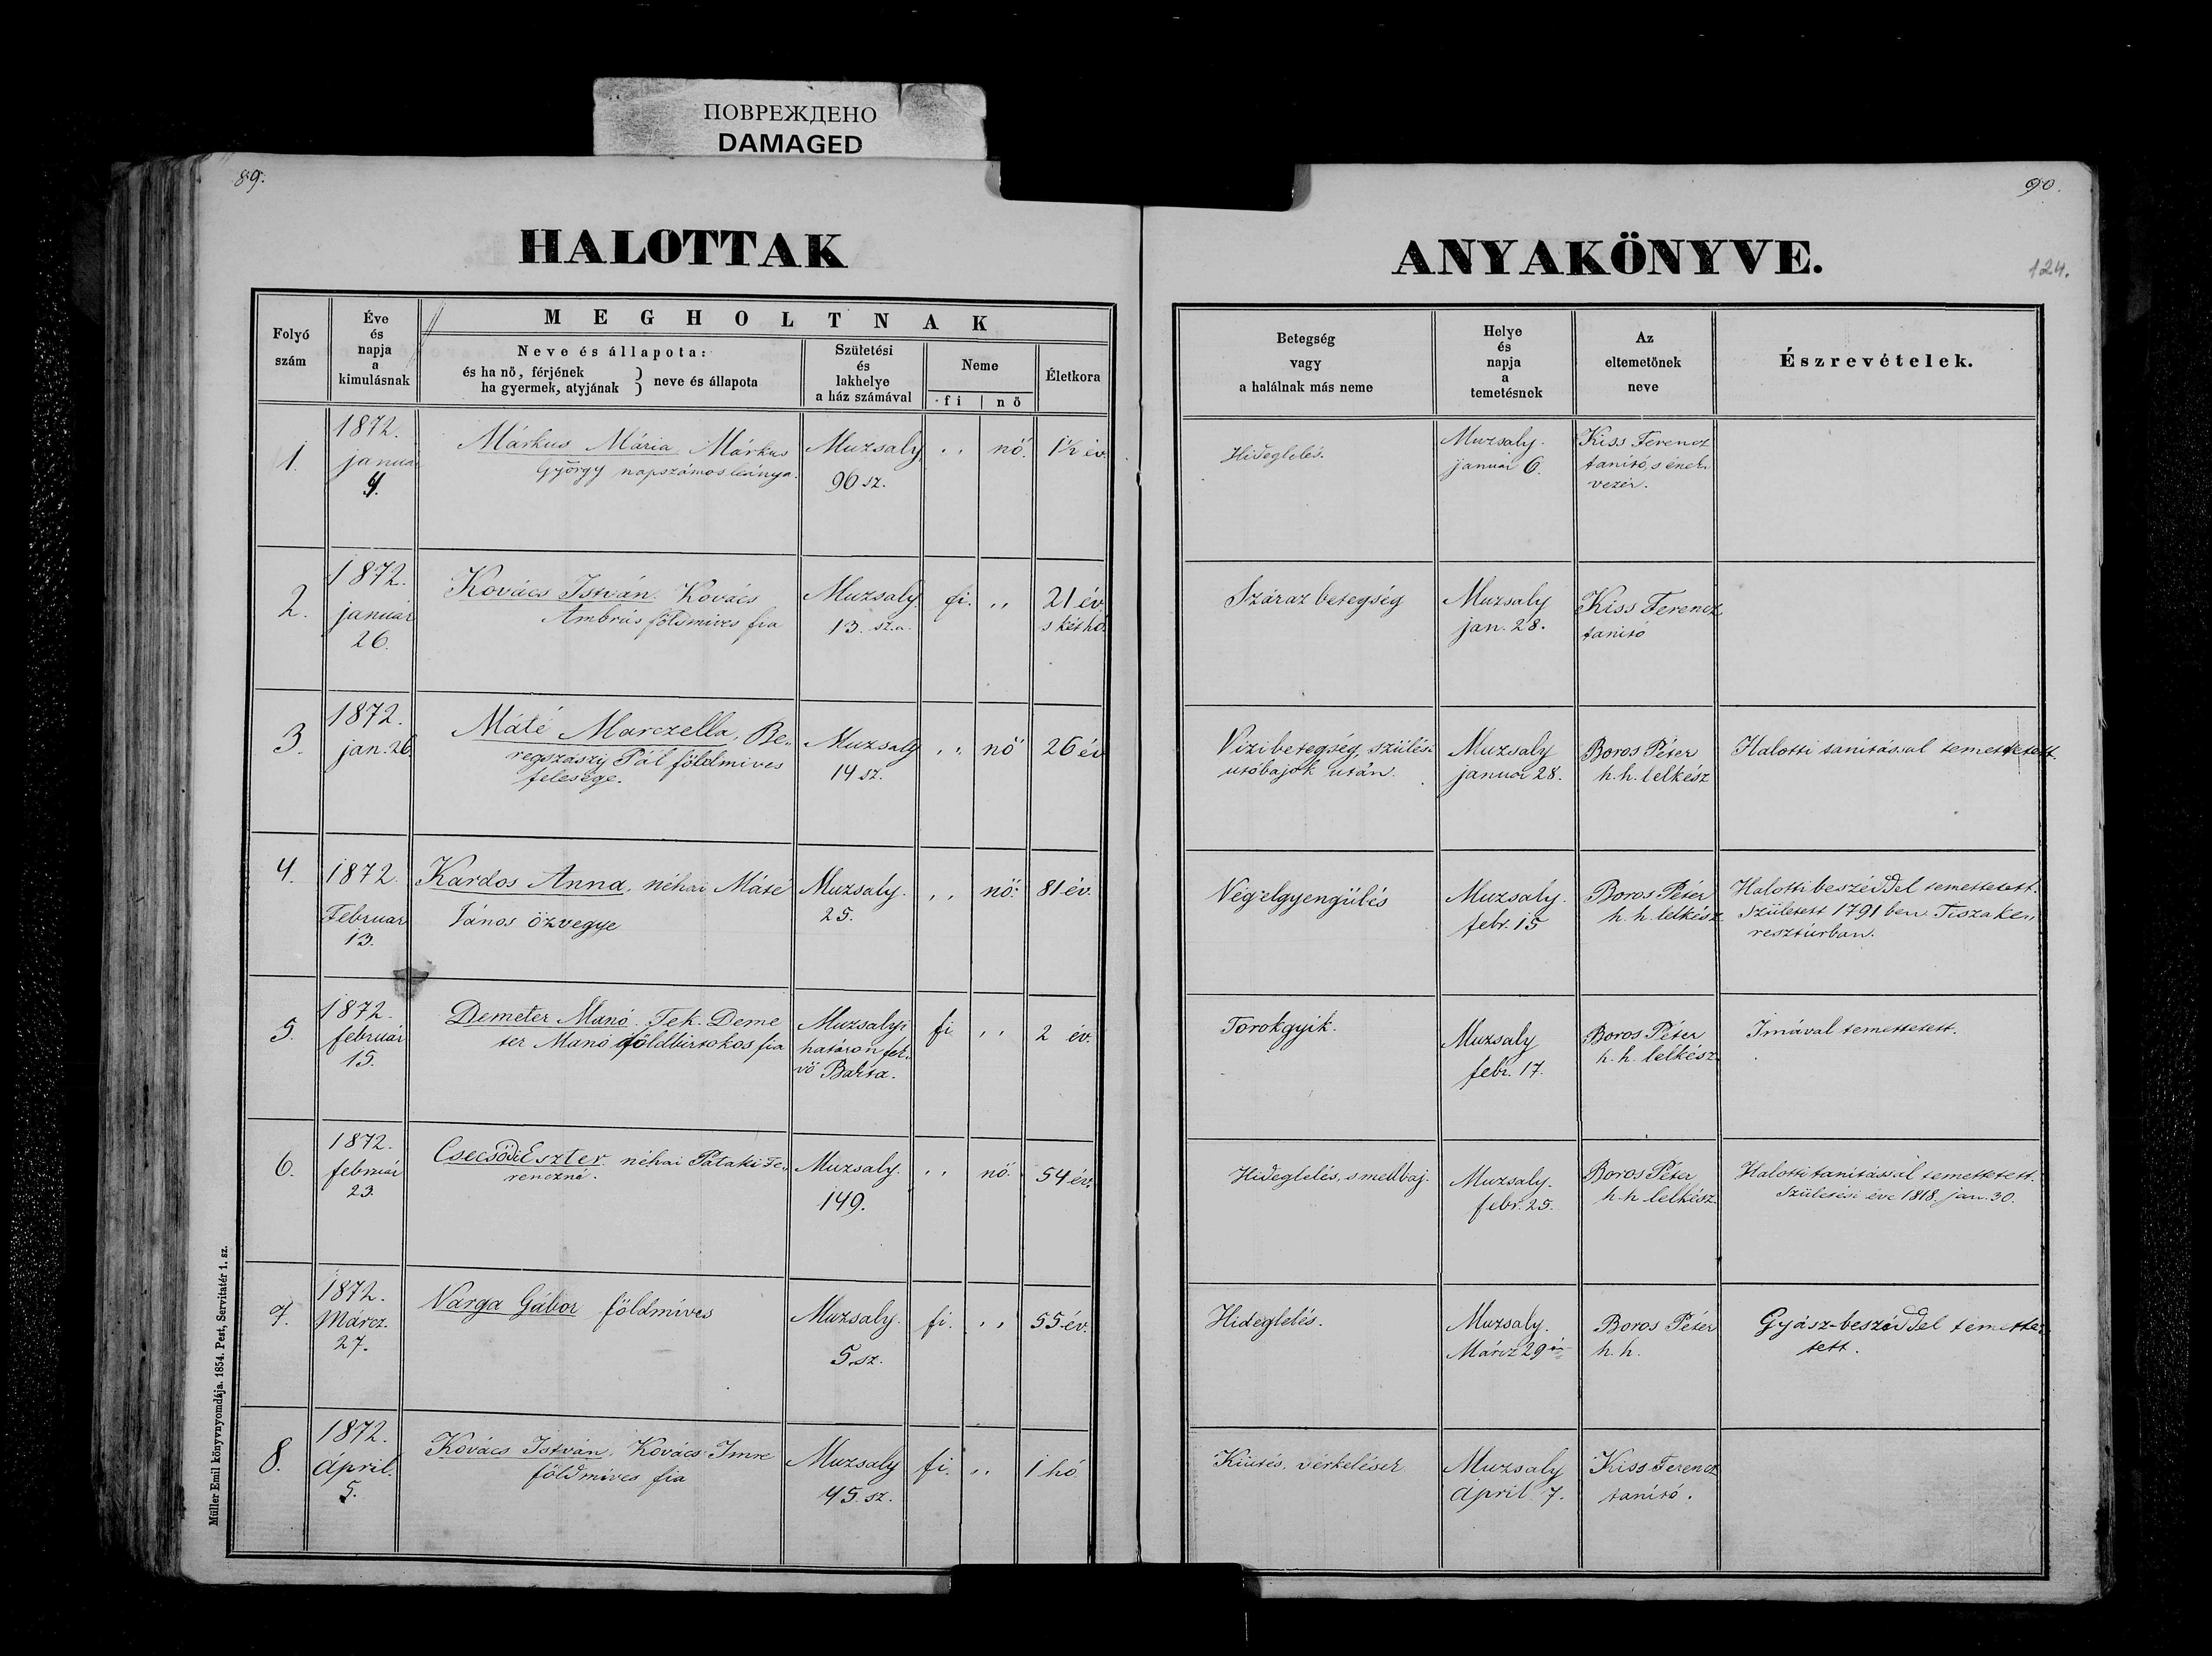 ПОВРЕЖДЕНО
DAMAGED
89.
HALOTTAK
Folyó szám
Éve és napja a kimulásnak
MEGHOLTNAK
Neve és állapota:
és ha nő, férjének
ha gyermek, atyjának } neve és állapota
Születési és lakhelye a ház számával
Neme
fi | nő
Életkora
1.
1872.
január
4.
Márkus Mária Márkus
György napszámos leánya.
Muzsaly
96 sz.
" nő.
1½ év.
2.
1872.
január
26.
Kovács István. Kovács
Ambrús földmíves fia
Muzsaly.
13. sz.a.
fi. "
21 év
s két hó.
3.
1872.
jan. 26
Máté Marczella, Be„
regszászy Pál földmives
felesége.
Muzsaly
14 sz.
" nő
26 év
4.
1872.
Február
13.
Kardos Anna, néhai Máté
János özvegye
Muzsaly.
25.
" nő.
81 év.
5.
1872.
február
15.
Demeter Manó. Tek. Deme
ter Manó földbirtokos fia
Muzsalyi
határon fek„
vő Bakta.
fi "
2 év.
6.
1872.
február
23.
Csecsődi Eszter. néhai Pataki Fe„
renczné.
Muzsaly.
149.
" nő.
54 év.
7.
1872.
Márcz.
27.
Varga Gábor földmíves
Muzsaly.
5. sz.
fi. "
55 év.
8.
1872.
April.
5.
Kovács István, Kovács Imre
földmíves fia
Muzsaly
45. sz.
fi. "
1 hó.
Müller Emil könyvnyomdája. 1854. Pest, Servitatér 1. sz.
90.
ANYAKÖNYVE.
124.
Betegség
vagy
a halálnak más neme
Helye
és
napja
a
temetésnek
Az
eltemetőnek
neve
Észrevételek.
Hideglelés.
Muzsaly.
január 6.
Kiss Ferencz
tanító, s ének„
vezér.
Száraz betegség
Muzsaly
jan. 28.
Kiss Ferencz
tanító
Vizibetegség, szülési
utóbajok után.
Muzsaly
január 28.
Boros Péter
h. h. lelkész
Halotti tanítással temettetett.
Végelgyengülés
Muzsaly.
febr. 15
Boros Péter
h. h. lelkész.
Halotti beszéddel temettetett.
Született 1791 ben Tiszake„
resztúrban.
Torokgyik.
Muzsaly
febr. 17.
Boros Péter
h. h. lelkész.
Imával temettetett.
Hideglelés, s mellbaj.
Muzsaly.
febr. 25.
Boros Péter
h. h lelkész.
Halotti tanítással temettetett.
Születési éve 1818. jan. 30.
Hideglelés.
Muzsaly.
Márcz 29 én
Boros Péter
h. h.
Gyász-beszéddel temette„
tett.
Kiütés,
Muzsaly
April 7.
Kiss Ferencz
tanító.